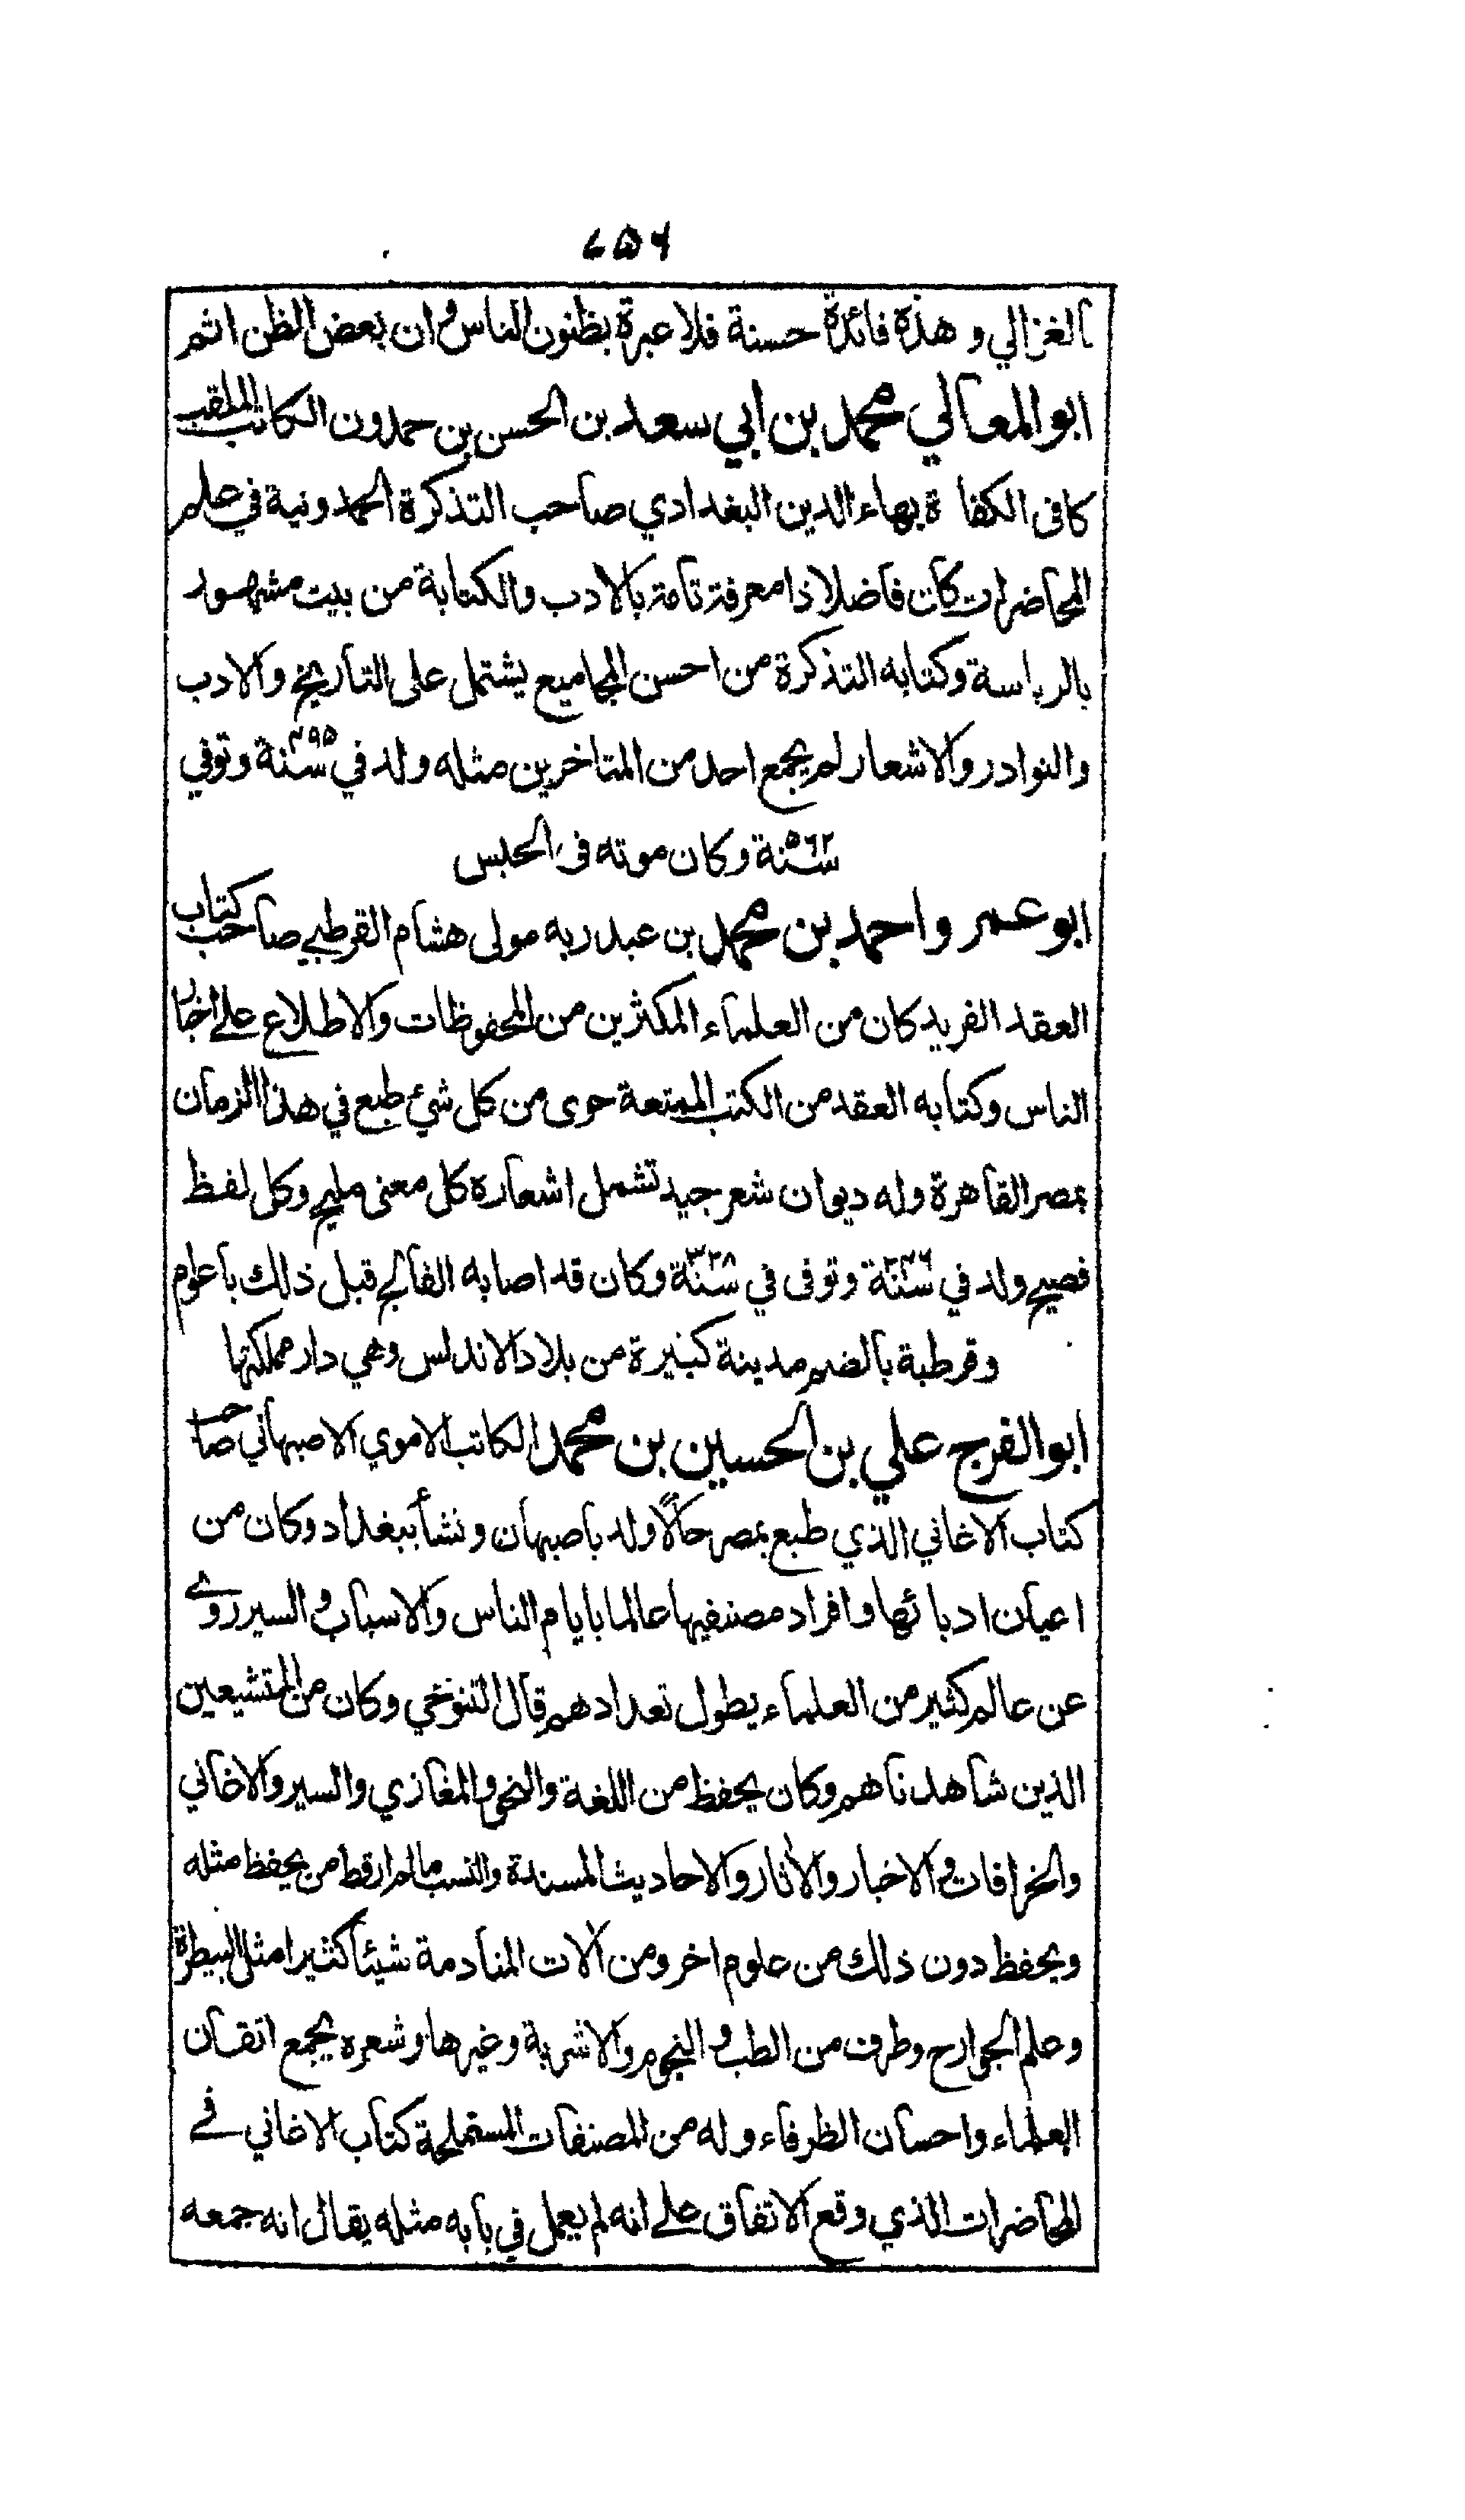 ٦٥٦
الغزالي وهذه فائدة حسنة فلا عبرة بظنون الناس وان بعض الظن اثم
ابو المعالي محمد بن ابي سعد بن الحسن بن حمدون الكاتب الملقب
كافى الكفاة بهاء الدين البغدادي صاحب التذكرة الحمدونية في علم
المحاضرات كان فاضلا ذا معرفة تامة بالادب والكتابة من بيت مشهور
بالرياسة وكتابه التذكرة من احسن المجاميع يشتمل على التاريخ والادب
والنوادر والاشعار لم يجمع احد من المتاخرين مثله ولد في سنة ٤٩٥ وتوفي
سنة ٥٦٢ وكان موته فى الحبس
ابو عمر واحمد بن محمد بن عبد ربه مولى هشام القرطبي صاحب كتاب
العقد الفريد كان من العلماء المكثرين من المحفوظات والاطلاع على اخبار
الناس وكتابه العقد من الكتب الممتعة حوى من كل شيء طبع في هذا الزمان
بمصر القاهرة وله ديوان شعر جيد تشمل اشعاره كل معنى مليح وكل لفظ
فصيح ولد في سنة ٢٤٦ وتوفى في سنة ٣٢٨ وكان قد اصابه الفالج قبل ذلك باعوام
وقرطبة بالضم مدينة كبيرة من بلاد الاندلس وهي دار مملكتها
ابو الفرج علي بن الحسين بن محمد الكاتب الاموي الاصبهاني صاحب
كتاب الاغاني الذي طبع بمصر حالًا ولد باصبهان ونشأ ببغداد وكان من
اعيان ادبائها وافراد مصنفيها عالما بايام الناس والاسباب والسير روى
عن عالم كثير من العلماء يطول تعدادهم قال التنوخي وكان من المتشيعين
الذين شاهدناهم وكان يحفظ من اللغة والنحو والمغازي والسير والاغاني
والخرافات والاخبار والأثار والاحاديث المسندة والنسب ما لم ار قط من يحفظ مثله
ويحفظ دون ذلك من علوم اخر ومن الات المنادمة شيئا كثيرا مثل البيطرة
وعلم الجوارح وطرف من الطب والنجوم والاشربة وغيرها وشعره يجمع اتقان
العلماء واحسان الظرفاء وله من المصنفات المستملحة كتاب الاغاني في
المحاضرات الذي وقع الاتفاق على انه لم يعمل في بابه مثله يقال انه جمعه